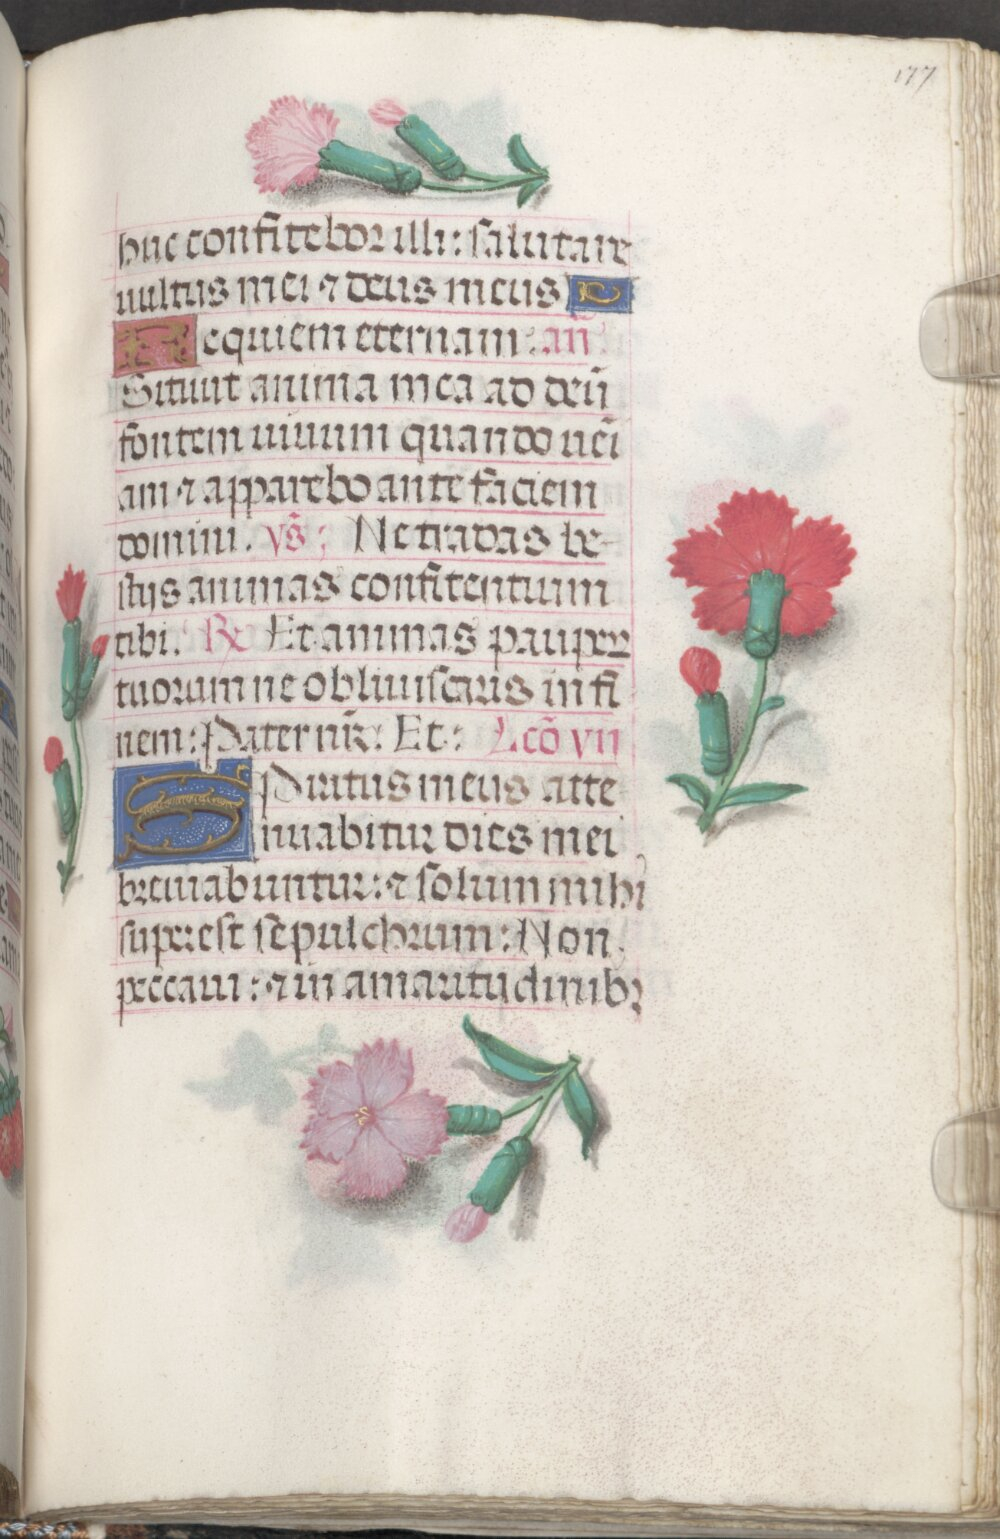 177
huc confitebor illi: salutare
uultus mei ⁊ deus meus
Requiem eternam: an̄.
Sitiuit anima mea ad deū
fontem uiuum quando uēi
am ⁊ apparebo ante faciem
domini. vs̄: Ne tradas be-
stijs animas confitentium
tibi. ℟ Et animas pauper
tuorum ne obliuiscaris in fi
nem: Pater nr̄: Et: Lcō vii
Spiritus meus atte
nuabitur dies mei
breuiabuntur: ⁊ solum mihi
superest sepulchrum: Non
peccaui: ⁊ in amaritudinibꝫ